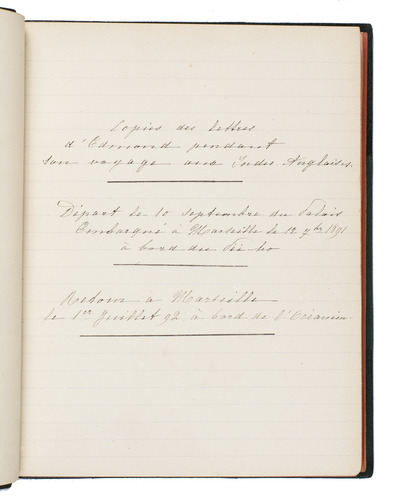 Copies des lettres
d'Edmond pendant
son voyage aux Indes Anglaises.
Départ le 10 septembre du Palais
Embarqué à Marseille le 12 7bre 1891
à bord du
Retour à Marseille
le 1er Juillet 92 à bord de l'Océanien.